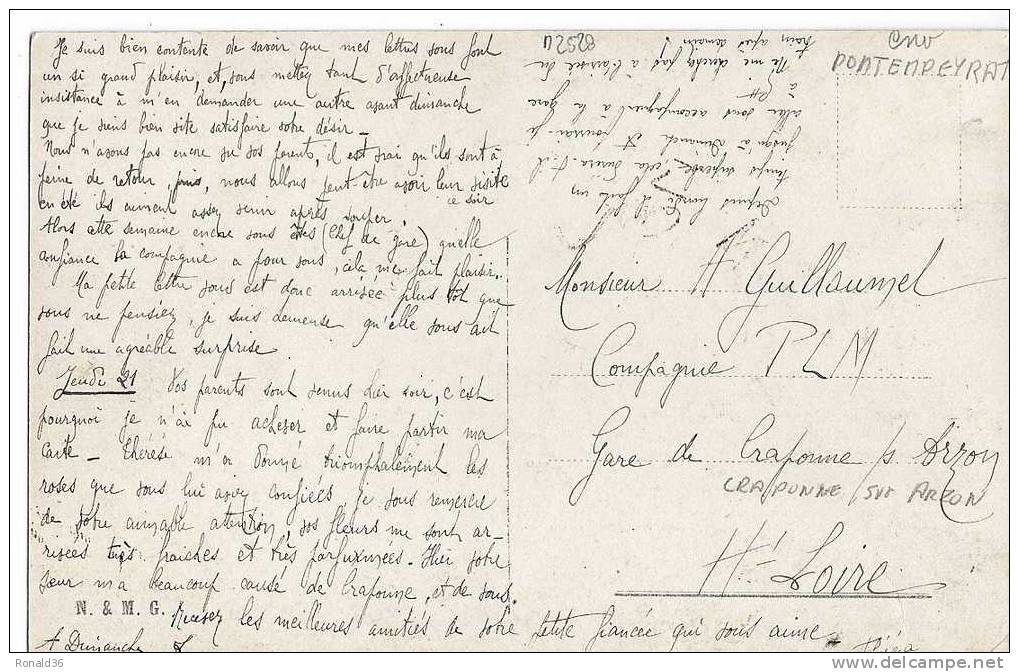 Je suis bien contente de savoir que mes lettres vous font
un si grand plaisir, et, vous mettez tant d'affectueuse
insistance à m'en demander une autre avant dimanche
que je viens bien vite satisfaire votre désir _
Nous n'avons pas encore vu vos parents, il est vrai qu'ils sont à
peine de retour, mais, nous allons peut-être avoir leur visite
ce soir
en été ils aiment assez venir après souper.
Alors cette semaine encore vous êtes (Chef de gare) quelle
confiance la compagnie a pour vous, cela me fait plaisir.
Ma petite lettre vous est donc arrivée plus tôt que
vous ne pensiez, je suis heureuse qu'elle vous ait
fait une agréable surprise
Jeudi 21 Vos parents sont venus hier soir, c'est
pourquoi je n'ai pu achever et faire partir ma
carte _ Thérèse m'a donné triomphalement les
roses que vous lui avez confiées je vous remercie
de votre aimable attention, vos fleurs me sont ar-
rivées très fraiches et très parfumées. Hier votre
sœur m'a beaucoup causé de Craponne, et de vous.
N. & M. G.
Recevez les meilleures amitiés de votre petite fiancée qui vous aime _
A Dimanche
Depuis lundi il fait un
temps superbe, cela durera-t-il
jusqu'à Dimanche et pourrai-je
aller vous accompagner à la gare
Ne me cherchez pas à l'arrivée du
train après demain!
D2528
PONTEMPEYRAT
Monsieur A Guillaumel
Compagnie P L M
Gare de Craponne s/ Arzon
CRAPONNE SUR ARZON
Hte Loire
Ronald36
www.delcampe.net